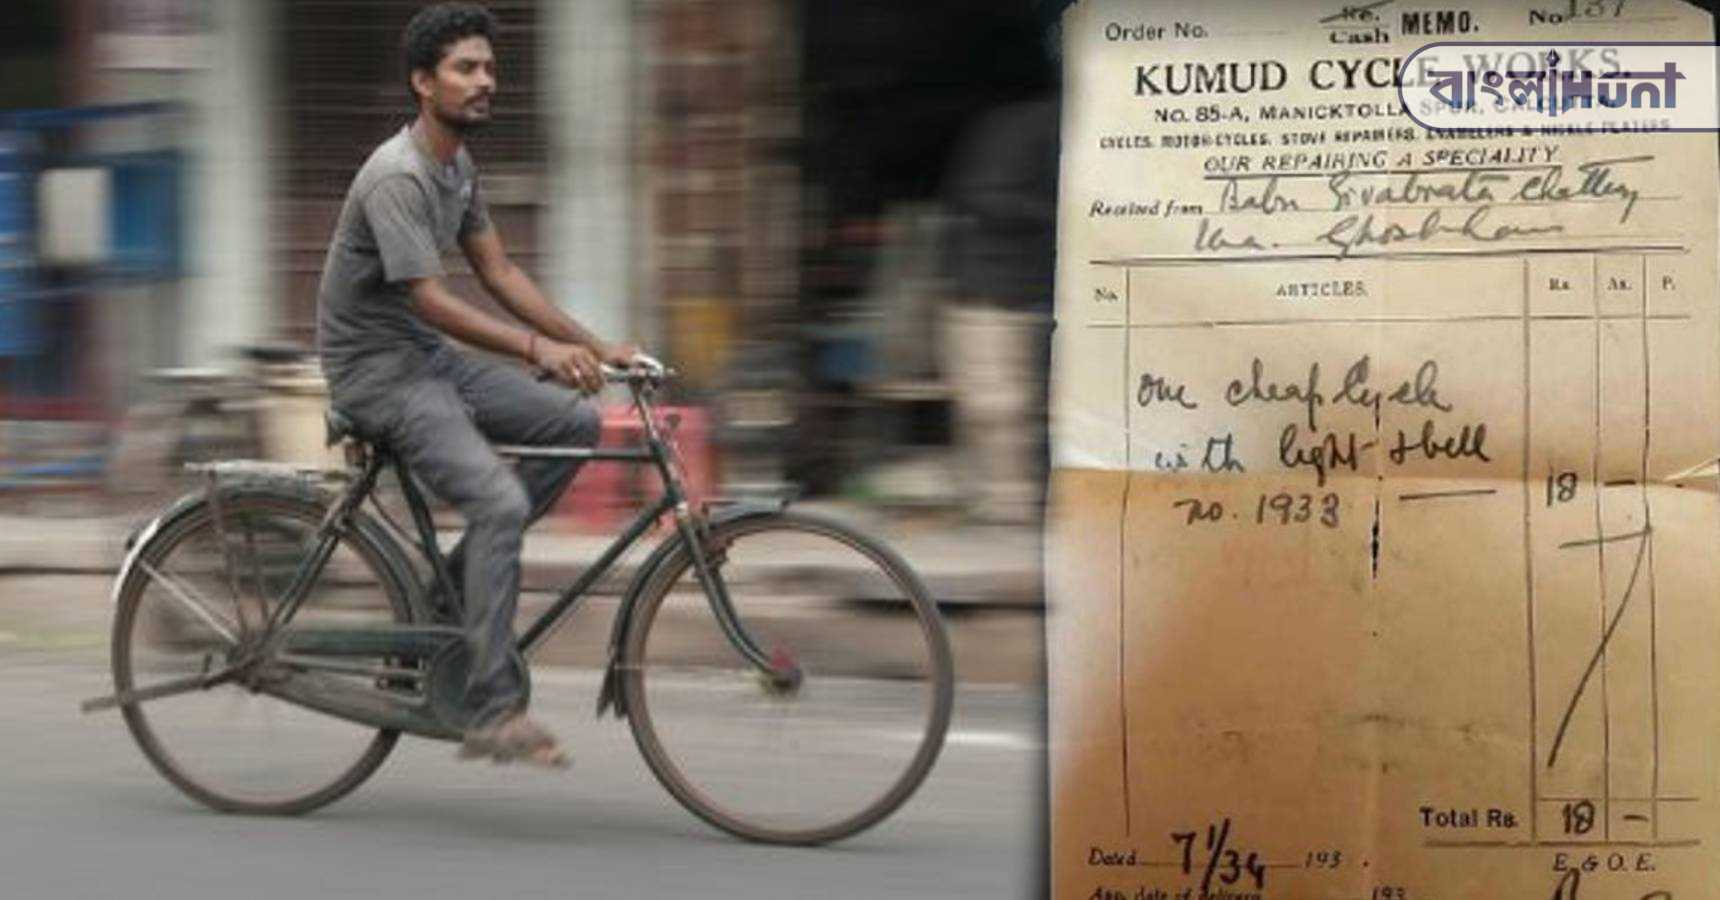 Order No. Re. Cash MEMO. No
KUMUD CYCLE WORKS.
বাংলাHunt
No. 85-A, MANICKTOLLA SPUR, CALCUTTA.
CYCLES, MOTOR-CYCLES, STOVE REPAIRERS, ENAMELERS & NICKLE PLATERS
OUR REPAIRING A SPECIALITY
Received from Babu Sivabrata
No. ARTICLES. Rs. As. P.
one cheap Cycle
with light & bell
no. 1933 18 –
Total Rs. 18 –
Dated 7/1/34 193 .
E. & O. E.
193